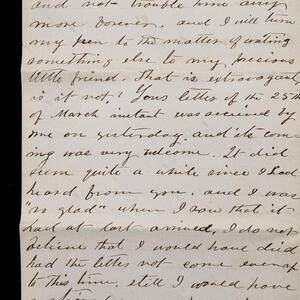 and not trouble him any
more forever, and I will turn
my pen to the matter of writing
something else to my precious
little friend. That is extravagant
is it not? Your letter of the 25th
of March instant was received by
me on yesterday, and its com-
ing was very welcome. It did
seem quite a while since I had
heard from you. and I was
"so glad" when I saw that it
had at last arrived. I do not
believe that I would have died
had the letter not come even up
to this time, still I would have